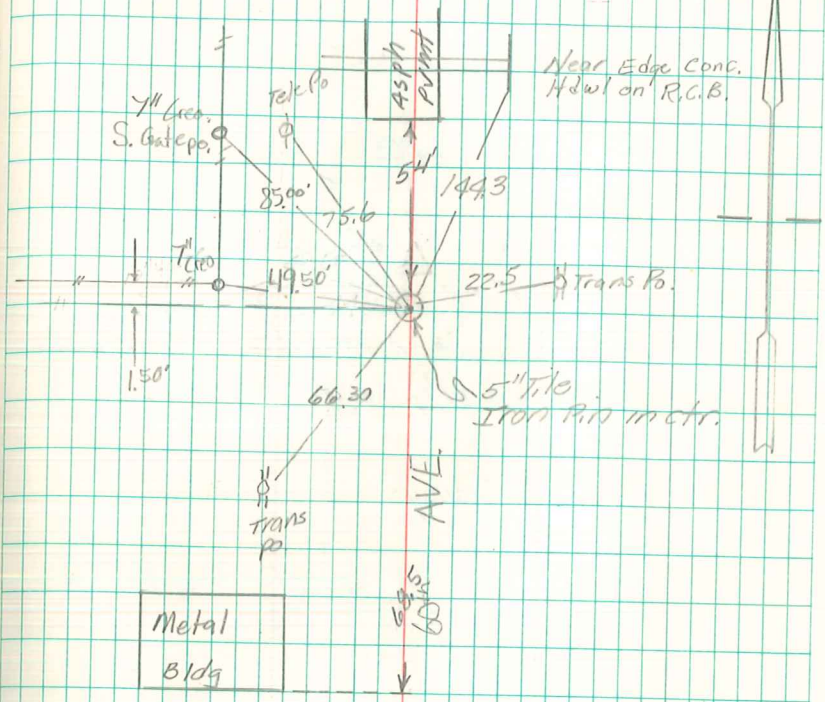 Asph
Pvmt
Near Edge Conc.
Hdwl on R.C.B.
Tele Po
7" Creo.
S. Gatepo.
54'
144.3
85.00'
75.6
7" Creo
49.50'
22.5
Trans Po.
1.50'
66.30
5" Tile
Iron Pin in ctr.
AVE.
Trans
po.
68.5
60th
Metal
Bldg